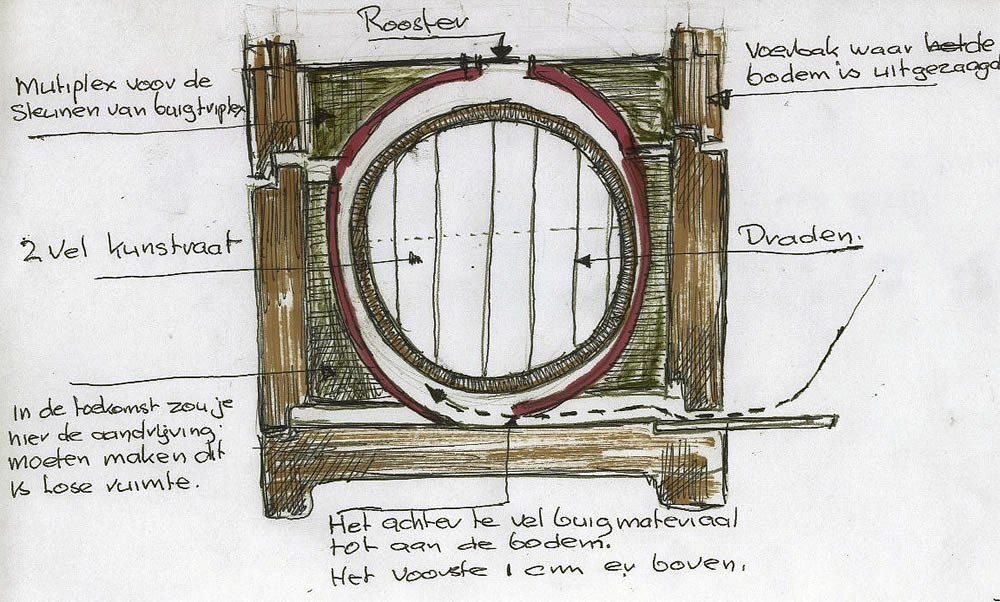 Rooster
Mutiplex voor de
Steunen van buigtriplex
Voerbak waar het de
bodem is uitgezaagd
2 vel kunstraat
Draden.
In de toekomst zou je
hier de aandrijving
moeten maken dit
is lose ruimte.
Het achterste vel buigmateriaal
tot aan de bodem.
Het voorste 1 cm er boven.